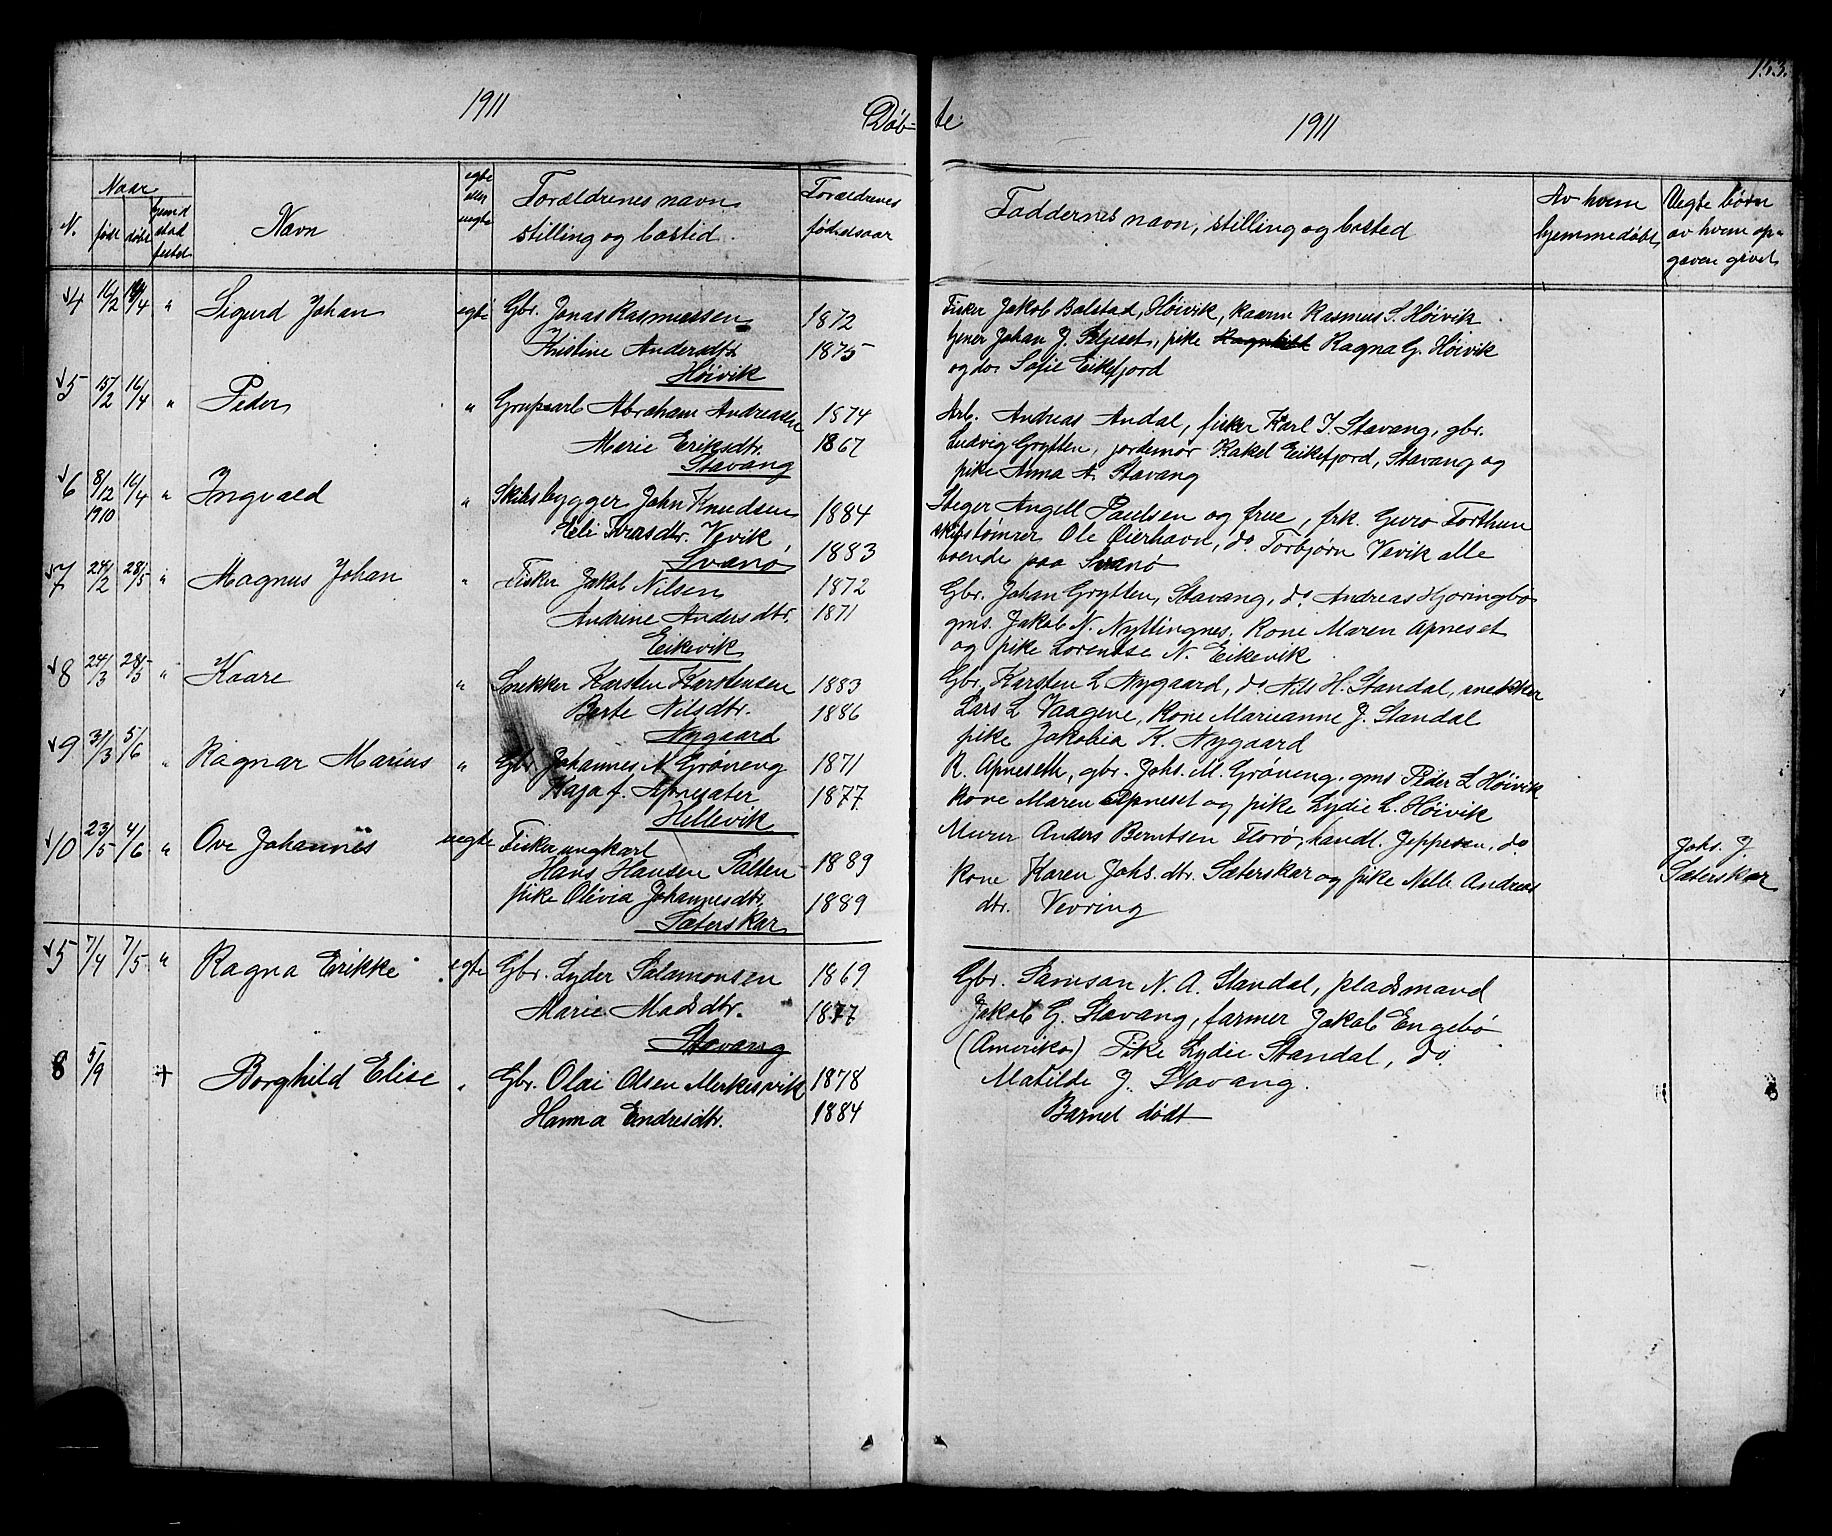 153.
1911 Døb-te 1911
N. Naar født døbt Navn egte eller uegte Forældrenes navn stilling og bosted Forældrenes fødselsaar Faddernes navn, stilling og bosted Av hvem hjemmedøbt Uegte børn av hvem opgaven givet
4 16/2 /4 " Sigurd Johan egte Gbr. Jonas Rasmussen 1872 Fisker Jakob Balstad, Høivik, kaarm Rasmus S. Høivik
Kristine Andersdtr 1875 tjener Johan J. Seljeset, pike Ragnhild Ragna G. Høivik
Høivik og do Sofie Eikefjord
5 15/2 16/4 " Peder " Grubearb Abraham Andreassen 1874 Arb. Andreas Andal, fisker Karl I. Stavang, gbr.
Marie Eriksdtr. 1867 Ludvig Grytten, jordemor Rakel Eikefjord, Stavang og
Stavang pike Anna A. Stavang
6 8/12 1910 16/4 " Ingvald " Skibsbygger John Knudsen 1884 Steger Angell Paulsen og frue, frk. Guro Forthun
Eli Torasdtr. Vevik 1883 skibstømrer Ole Øierhavn, do Torbjørn Vevik alle
Svanø boende paa Svanø
7 24/2 28/5 " Magnus Johan " Fisker Jakob Nilsen 1872 Gbr. Johan Grytten, Stavang, do Andreas Hjoringbo
Andrine Andersdtr. 1871 gms. Jakob N. Nyttingnes, Kone Maren Apneset
Eikevik og pike Lorentse N. Eikevik
8 24/3 28/5 " Kaare " Snekker Karsten Karstensen 1883 Gbr. Karsten L Nygaard, do Nils H. Standal, snekker
Berte Nilsdtr. 1886 Lars L Vaagene, Kone Marianne J. Standal
Nygaard pike Jakobia K. Nygaard
9 31/3 5/6 " Ragnar Marius " Gbr Johannes M Grøneng 1871 R. Apneseth, gbr. Johs. M. Grøneng, gms Peder L Høivik
Kaja f. Apnesæter 1877 Kone Maren Apneset og pike Lydie L. Høivik
Hellevik
10 23/5 4/6 " Ove Johannes uegte Fisker ungkarl Murer Anders Berntsen Florø, handl. Jeppesen, do. Johs. J.
Hans Hansen Salten 1889 Kone Karen Johs. dtr. Sæterskar og pike Nelli Andreas Sæterskar
pike Olevia Johannesdtr. 1889 dtr. Vevring
Sæterskar
5 7/4 7/5 " Ragna Erikke egte Gbr. Lyder Salamonsen 1869 Gbr. Samson N. A. Standal, pladsmand
Marie Madsdtr. 1877 Jakob G. Stavang, farmer Jakob Engebø
Stavang (Amerika) Pike Lydie Standal, do
8 5/9 + Borghild Elise " Gbr. Olai Olsen Merkesvik 1878 Matilde J. Stavang.
Hanna Endresdtr. 1884 Barnet dødt